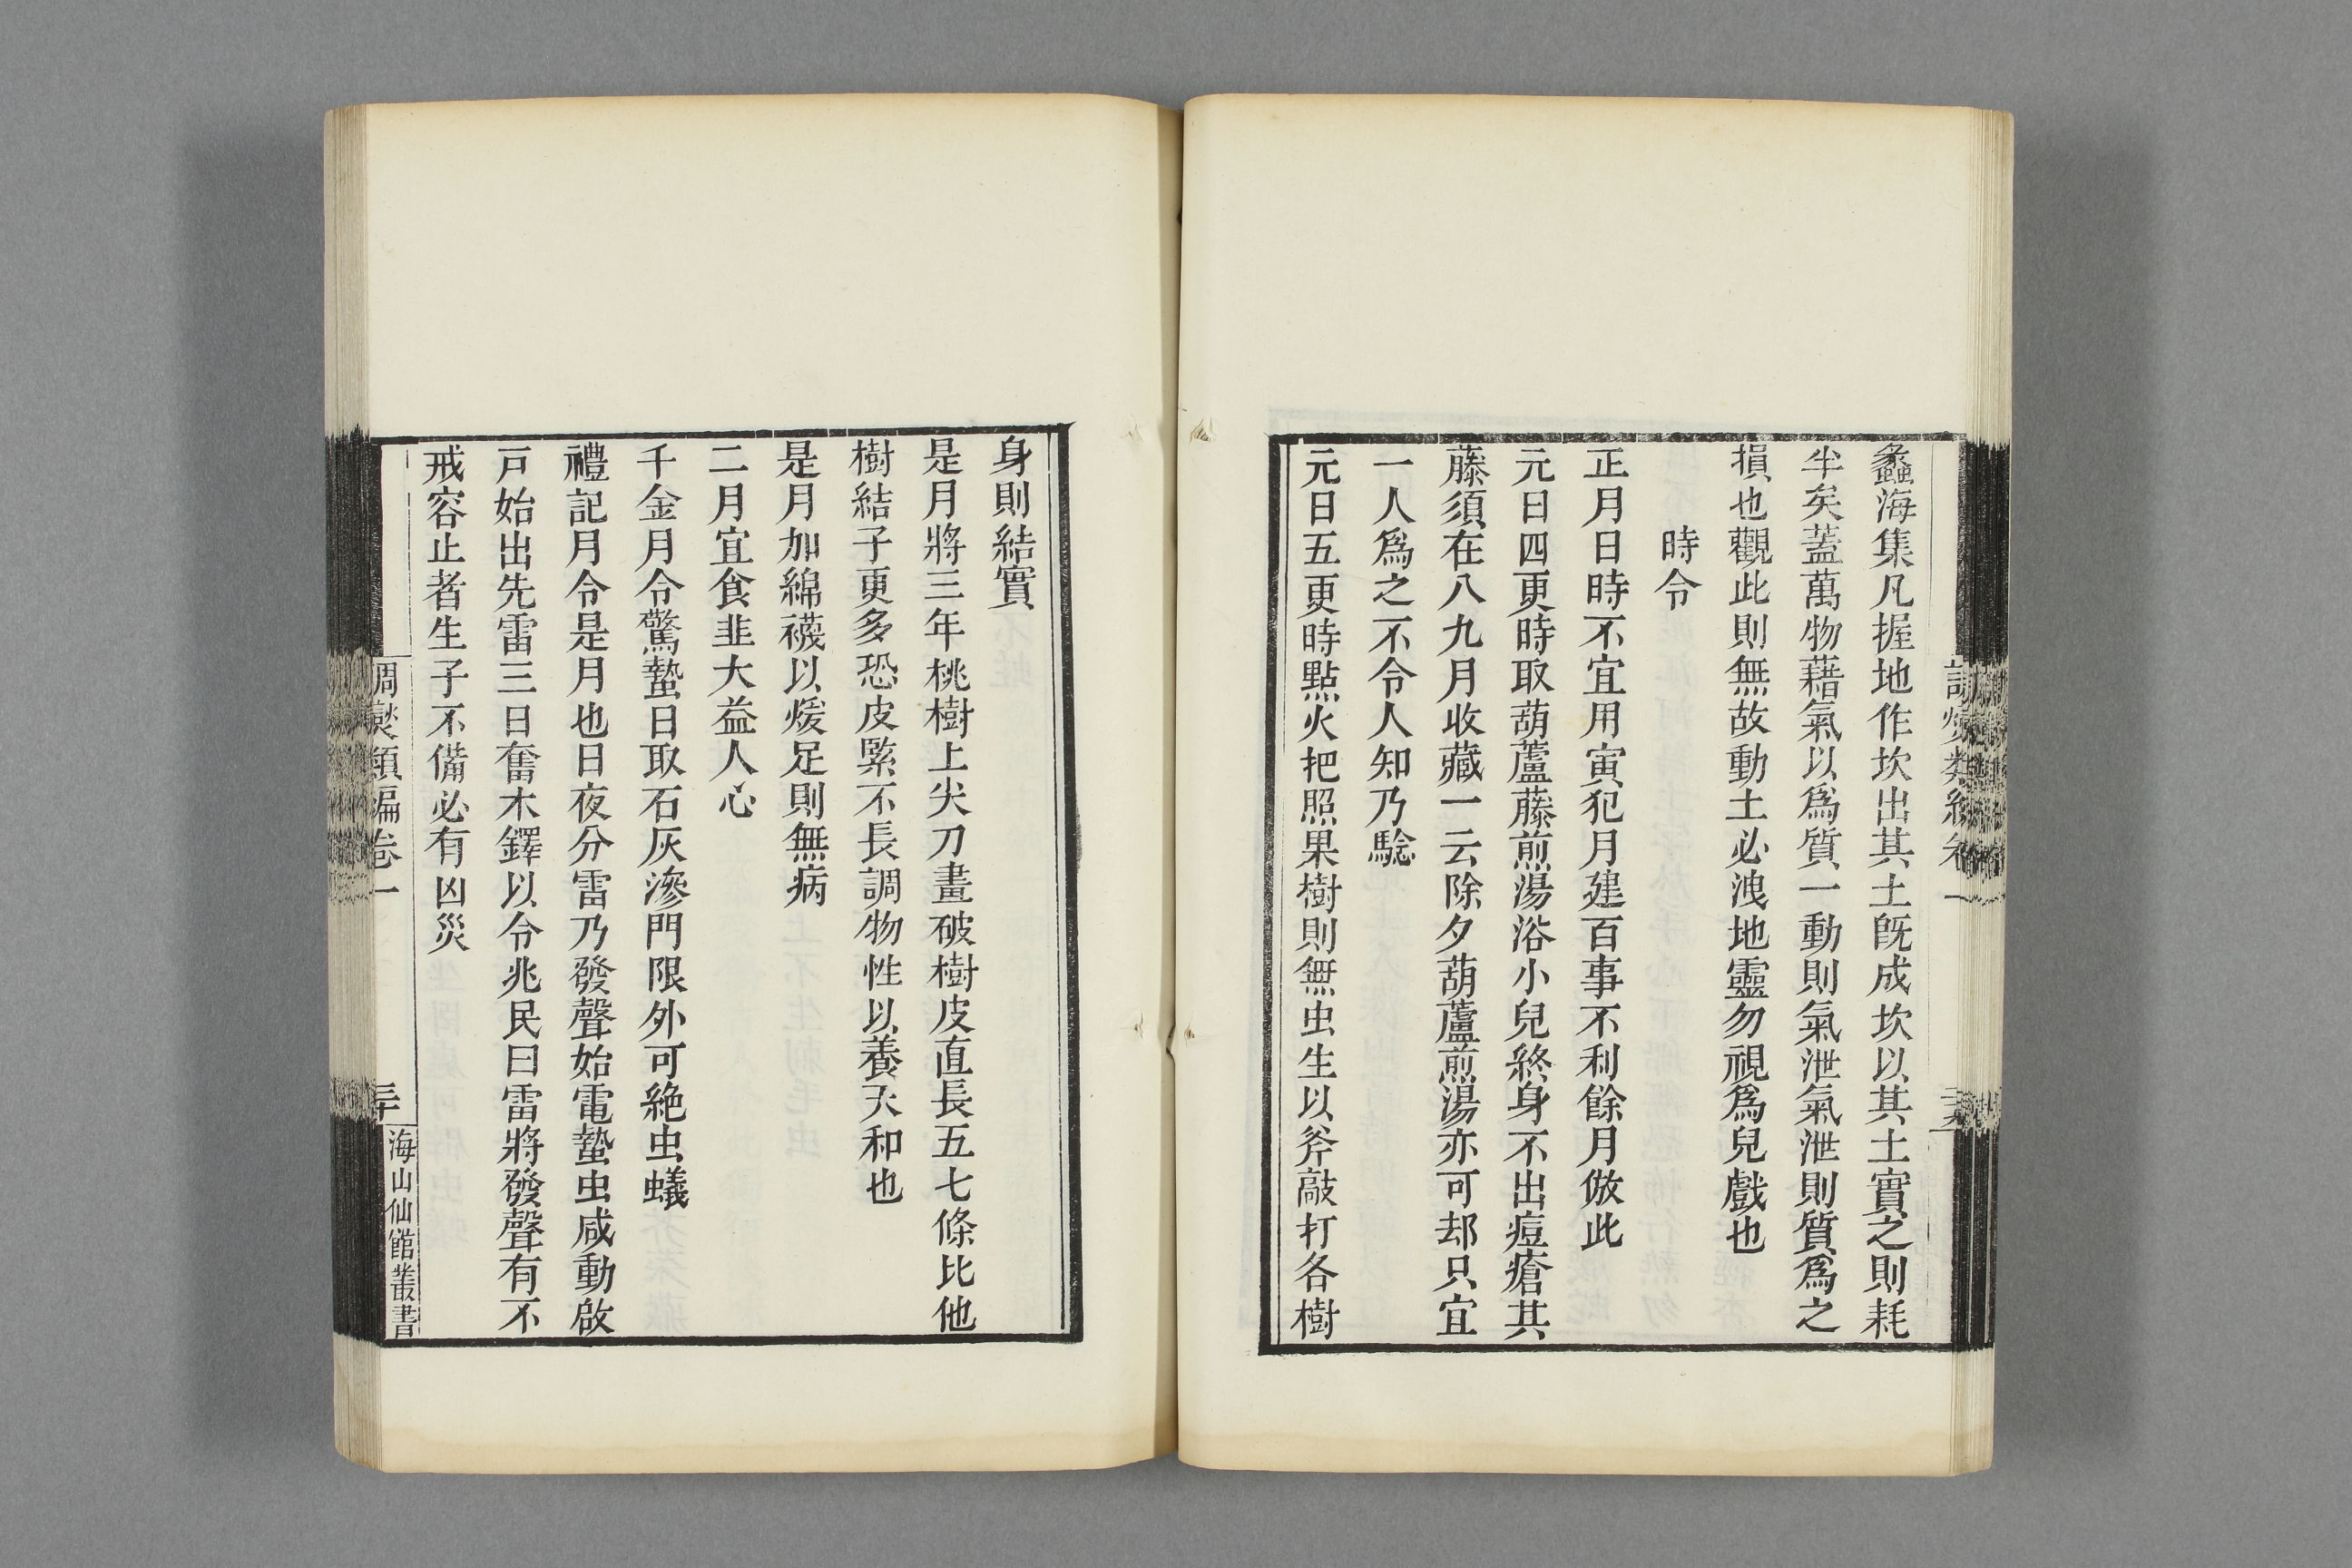 蠡海集凡握地作坎出其土既成坎以其土實之則耗
半矣蓋萬物藉氣以爲質一動則氣泄氣泄則質爲之
損也觀此則無故動土必洩地靈勿視爲兒戲也
時令
正月日時不宜用寅犯月建百事不利餘月倣此
元日四更時取葫蘆藤煎湯浴小兒終身不出痘瘡其
藤須在八九月收藏一云除夕葫蘆煎湯亦可却只宜
一人爲之不令人知乃驗
元日五更時點火把照果樹則無虫生以斧敲打各樹
身則結實
是月將三年桃樹上尖刀畫破樹皮直長五七條比他
樹結子更多恐皮緊不長調物性以養天和也
是月加綿襪以煖足則無病
二月宜食韭大益人心
千金月令驚蟄日取石灰滲門限外可絶虫蟻
禮記月令是月也日夜分雷乃發聲始電蟄虫咸動啟
戸始出先雷三日奮木鐸以令兆民曰雷將發聲有不
戒容止者生子不備必有凶災
調燮類編卷一
海山仙館叢書